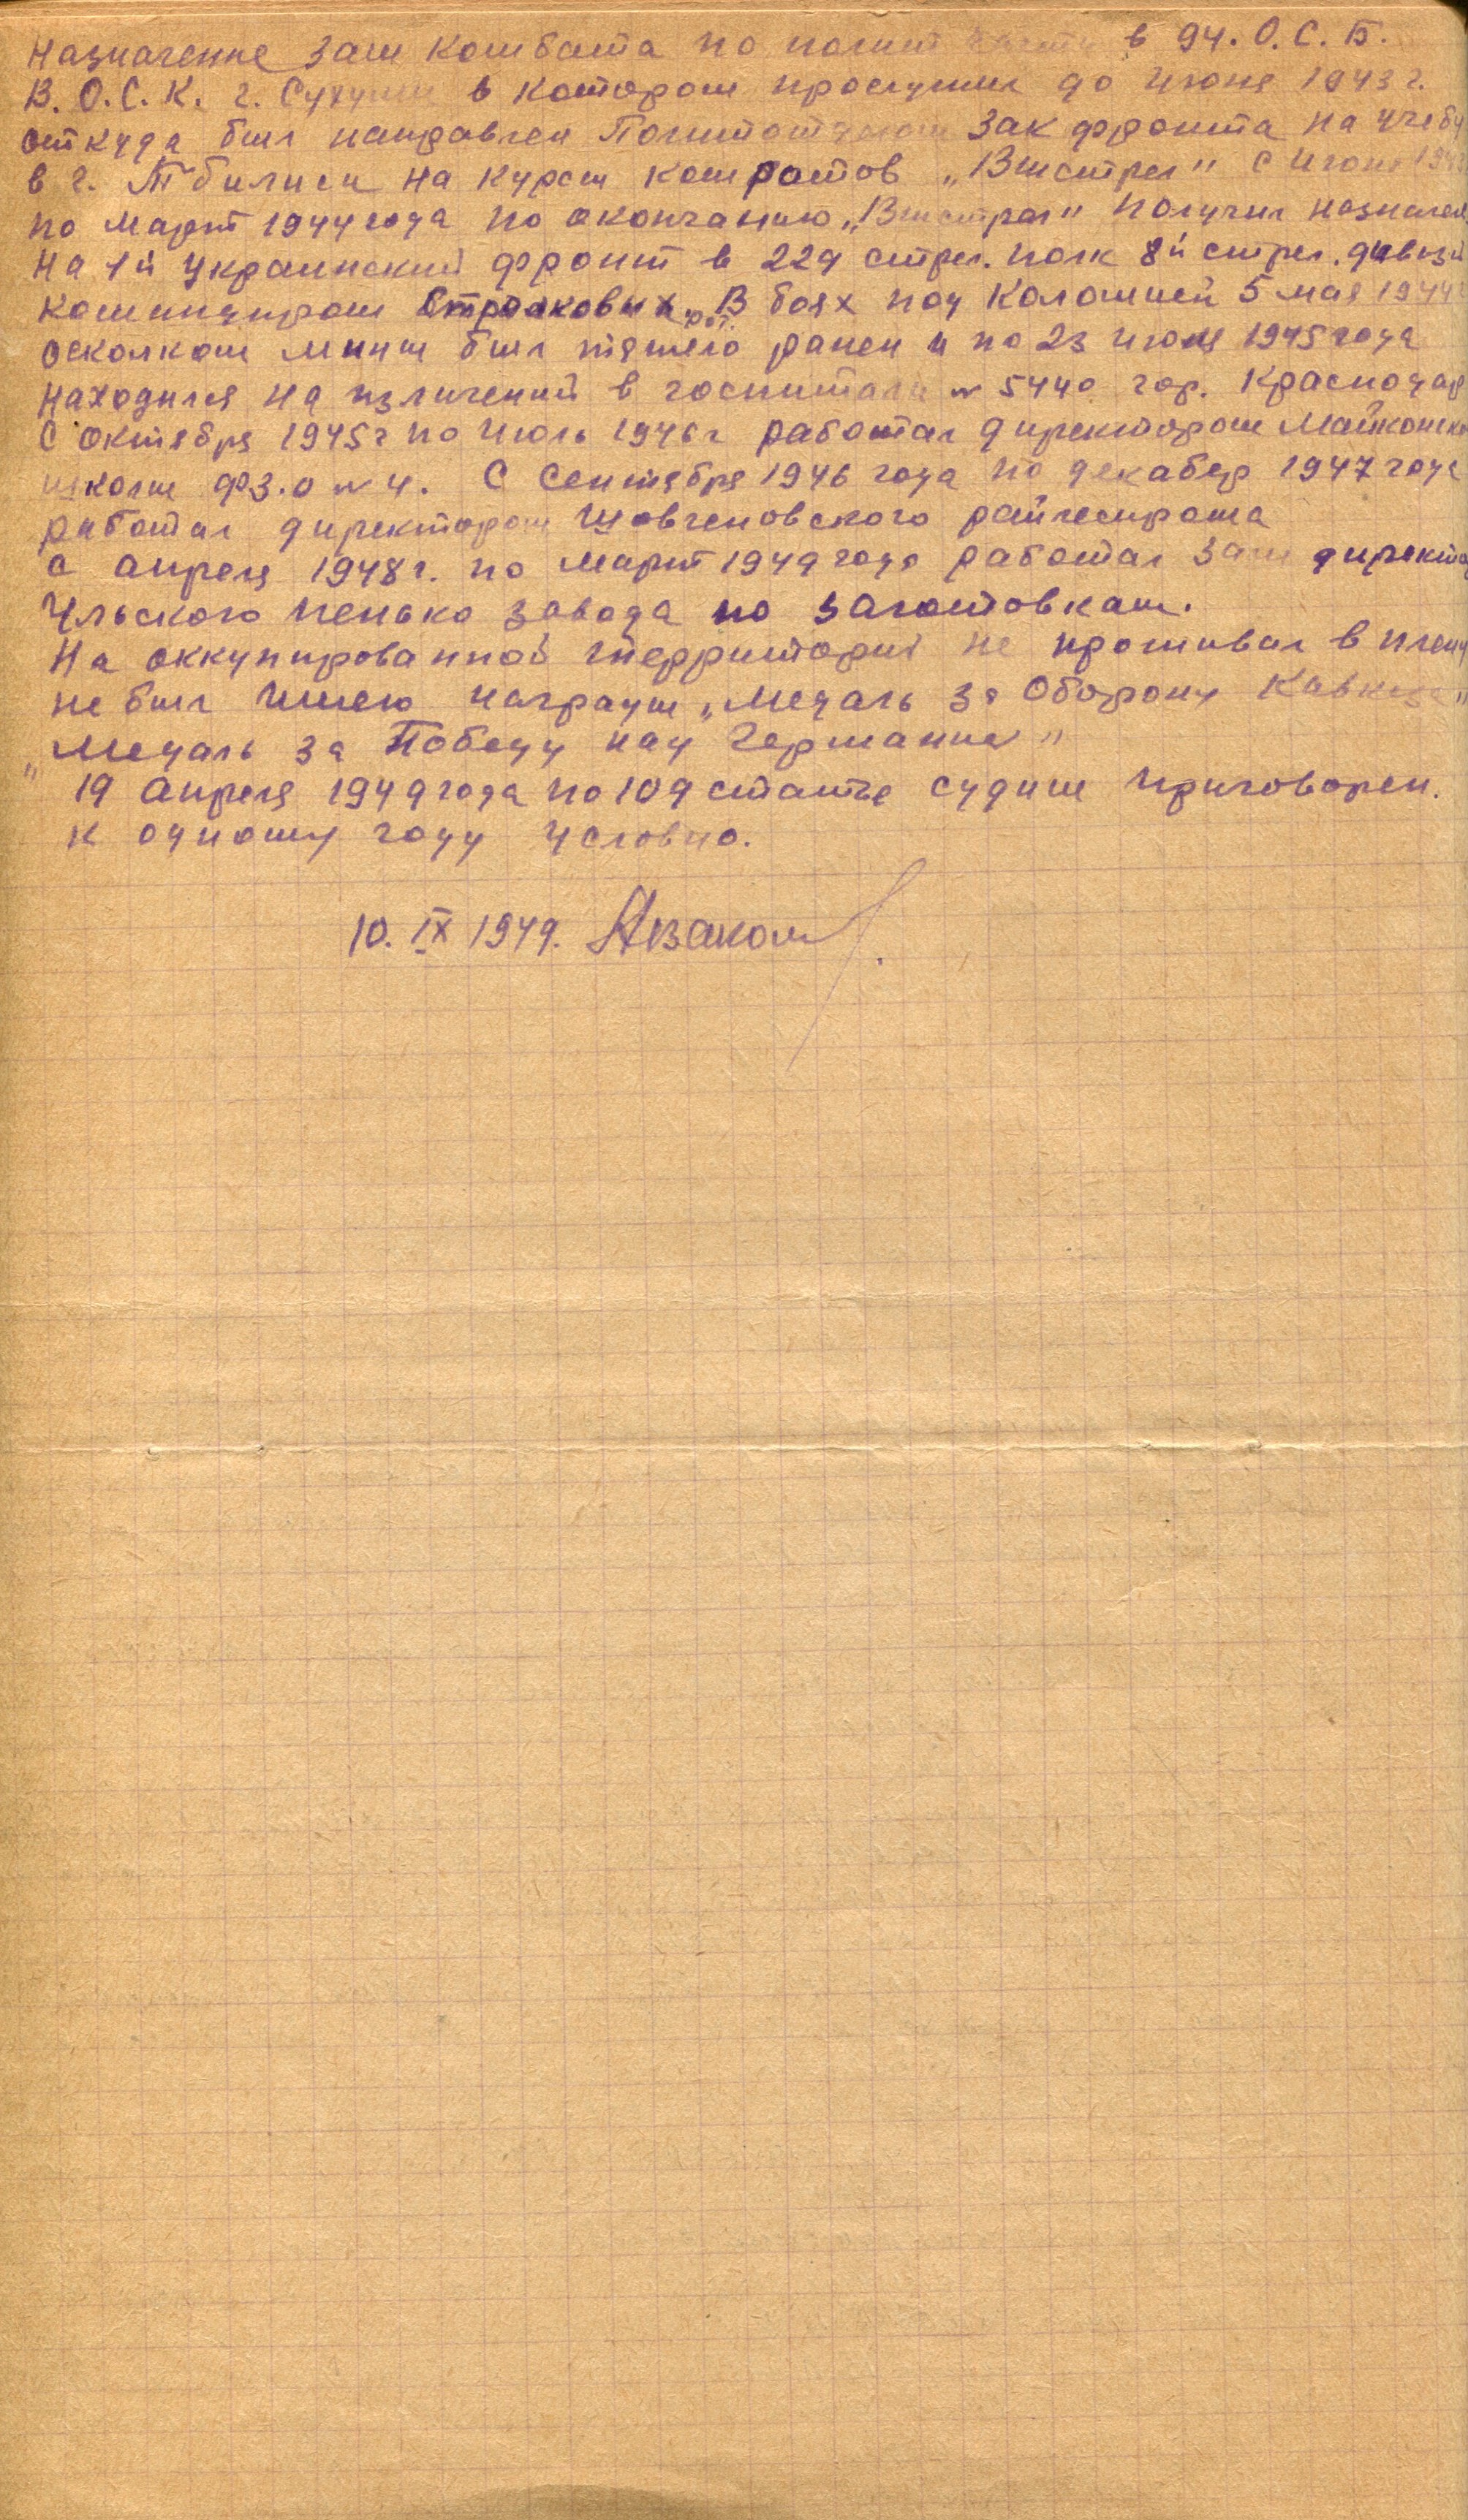 Назначение зам комбата по полит части в 94. О.С.Б.
В.О.С.К. г. Сухуми в котором прослужил до Июня 1943 г.
откуда был направлен Политотделом Зак фронта на учебу
в г. Тбилиси на курсы комротов „Выстрел" с Июня
по Март 1944 года по окончанию „Выстрел" получил назначен
на 1й Украинский фронт в 229 стрел. полк 8й стрел. дивизи
командиром Стрелковых рот. В боях под Коломией 5 мая 1944
осколком мины был тяжело ранен и по 23 июля 1945 года
находился на изличений в госпитале № 5440 гор. Краснодар
С октября 1945 г по Июль 1946 г работал директором Майкопско
школы ФЗ.О № 4. С Сентября 1946 года по декабер 1947 года
работал директором Шовгеновского райлеспрома
с апреля 1948 г. по март 1949 года работал зам директо
Ульского пенько завода по заготовкам.
На оккупированной территорий не проживал в плену
не был Имею награды „Медаль за Оборону Кавказа"
„Медаль за Победу над Германие"
19 апреля 1949 года по 109 статье судим приговорен.
к одному году условно.
10. IX 1949.